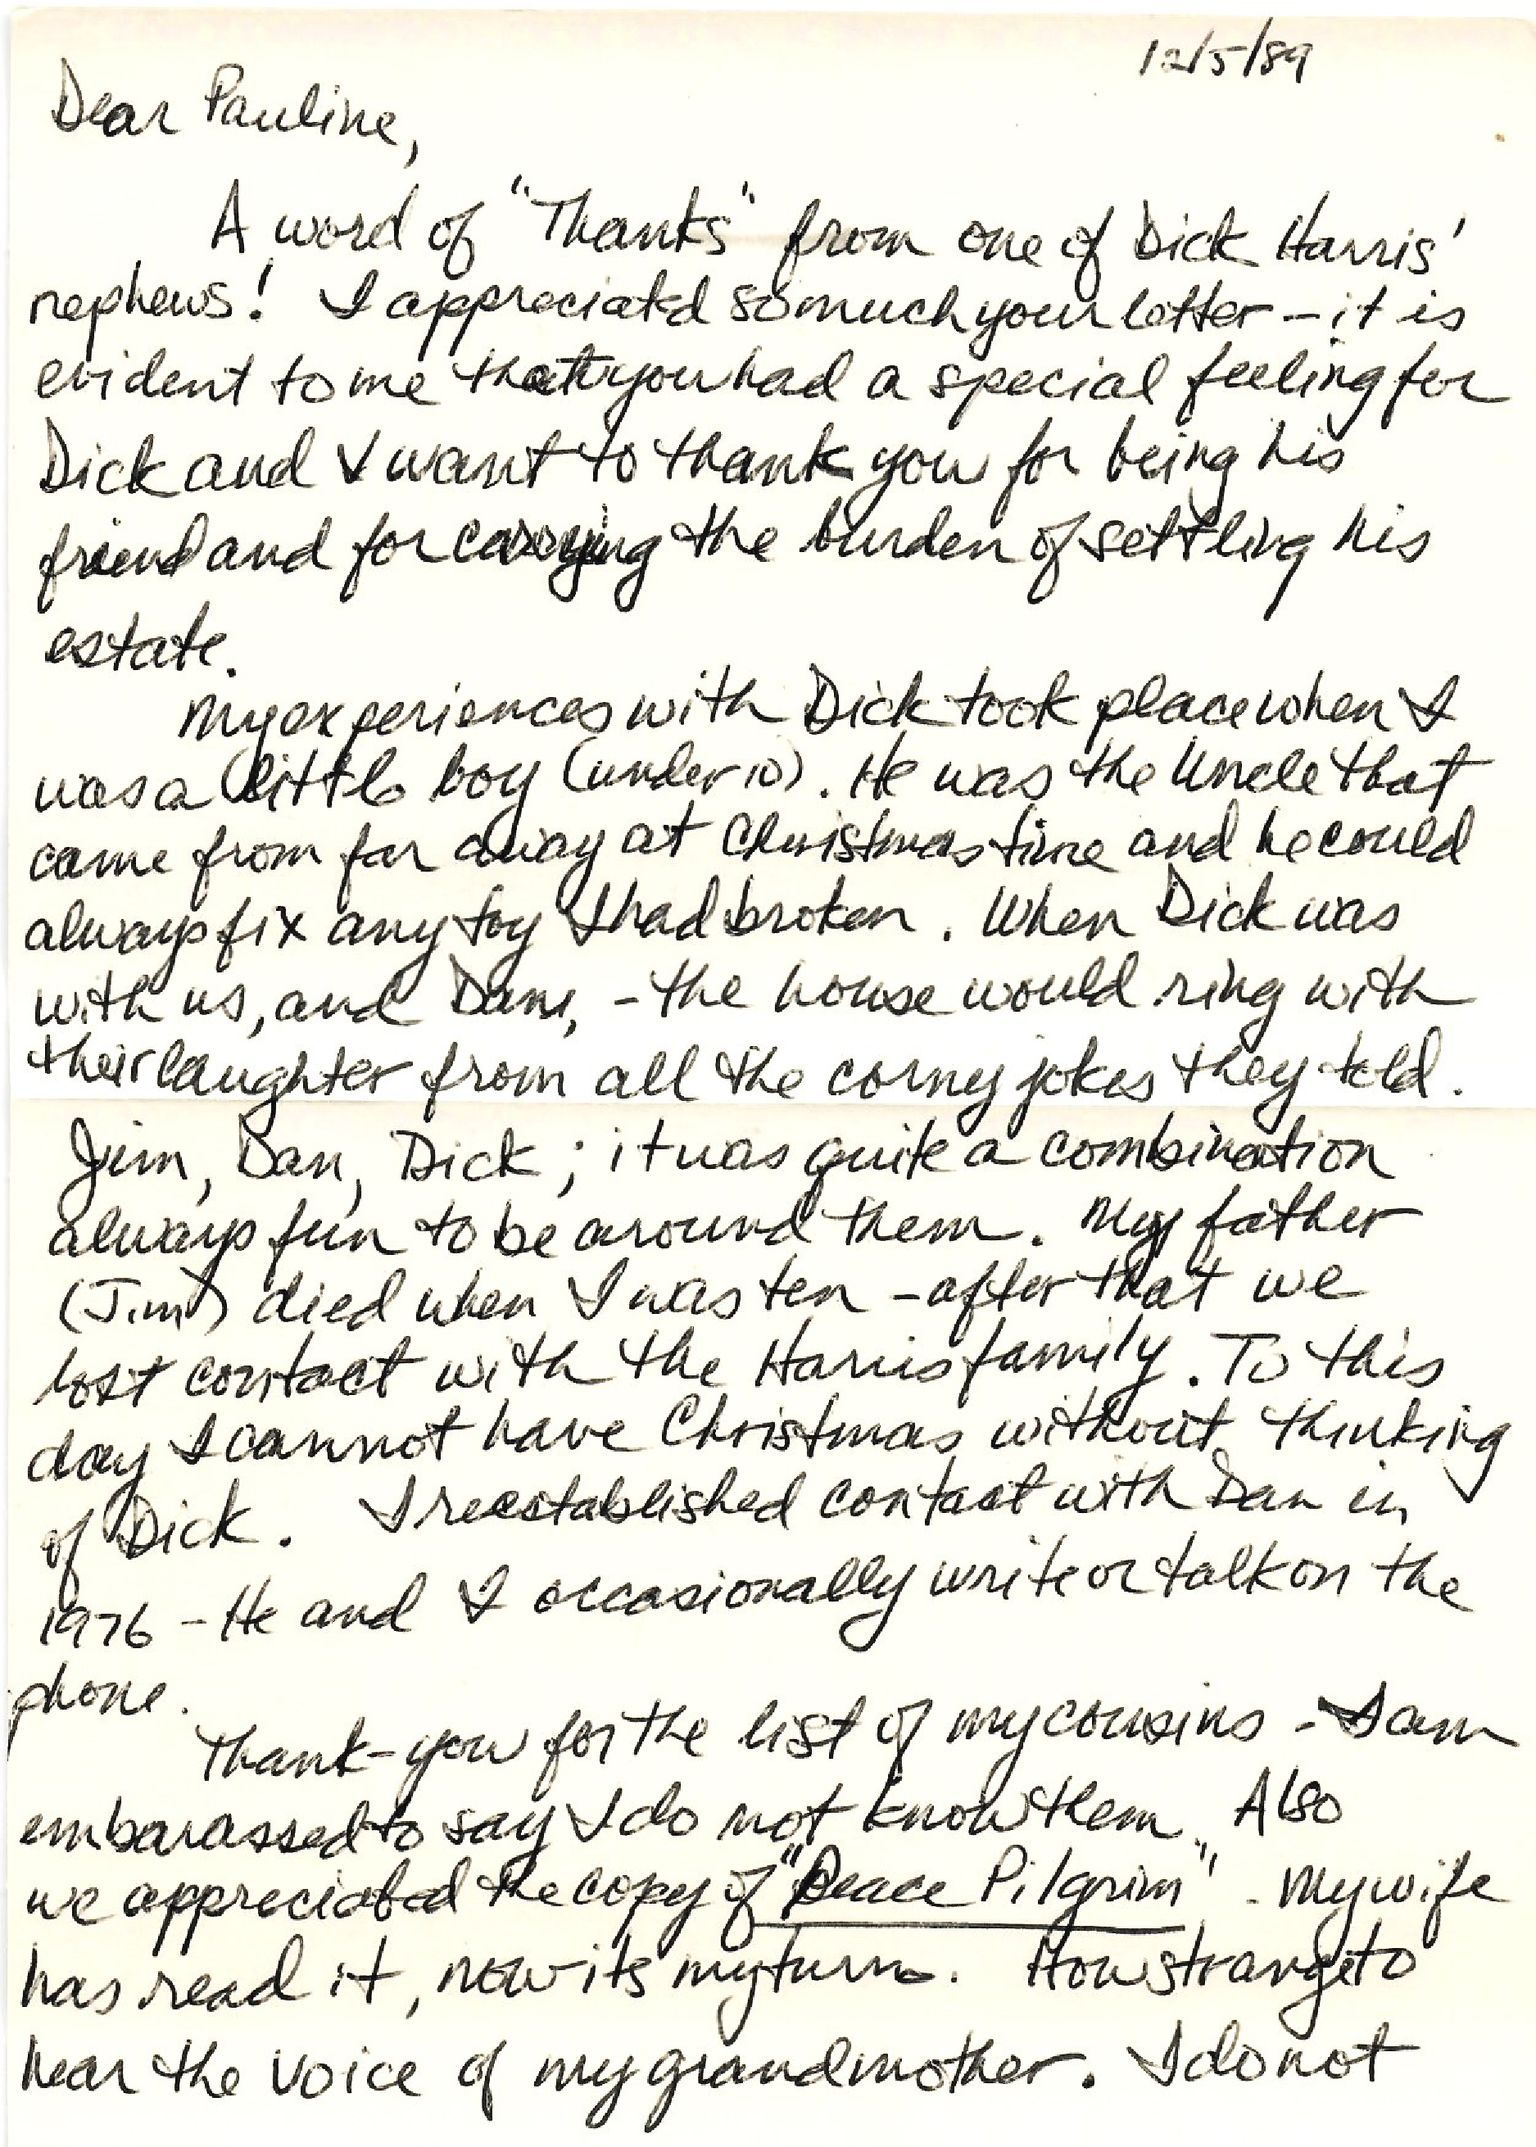 12/5/89
Dear Pauline,
A word of "Thanks" from one of Dick Harris'
nephews! I appreciated so much your letter – it is
evident to me that you had a special feeling for
Dick and I want to thank you for being his
friend and for carrying the burden of settling his
estate.
My experiences with Dick took place when I
was a little boy (under 10). He was the Uncle that
came from far away at Christmas time and he could
always fix any toy I had broken. When Dick was
with us, and Dan, – the house would ring with
their laughter from all the corny jokes they told.
Jim, Dan, Dick; it was quite a combination
always fun to be around them. My father
(Jim) died when I was ten – after that we
lost contact with the Harris family. To this
day I cannot have Christmas without thinking
of Dick. I reestablished contact with Dan in
1976 – He and I occasionally write or talk on the
phone.
Thank-you for the list of my cousins – I am
embarassed to say I do not know them. Also
we appreciated the copy of "Peace Pilgrim" – My wife
has read it, now its my turn. How strange to
hear the voice of my grandmother. I do not